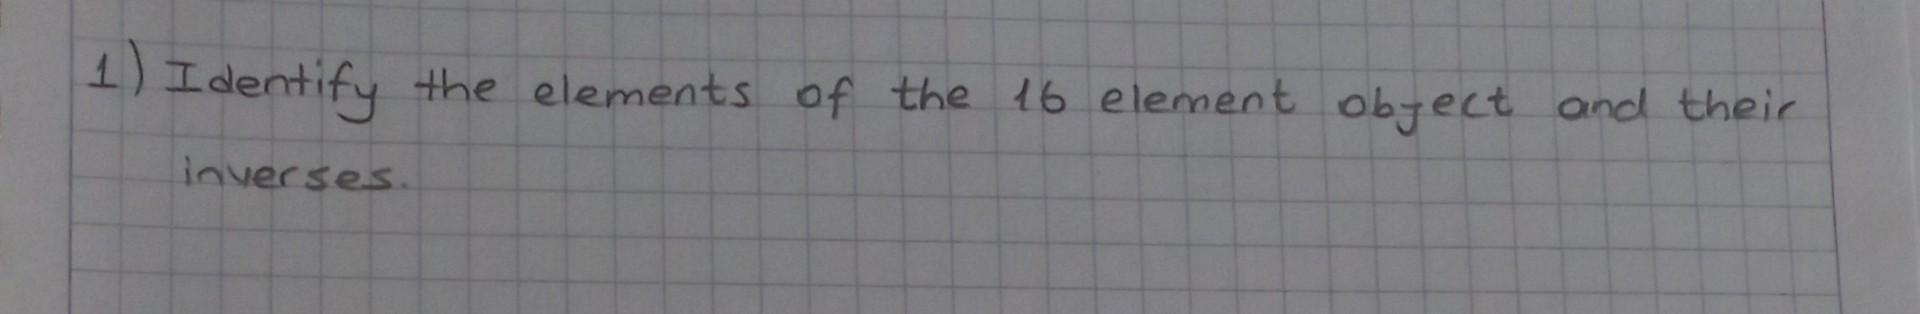 1) Identify the elements of the 16 element object and their
inverses.